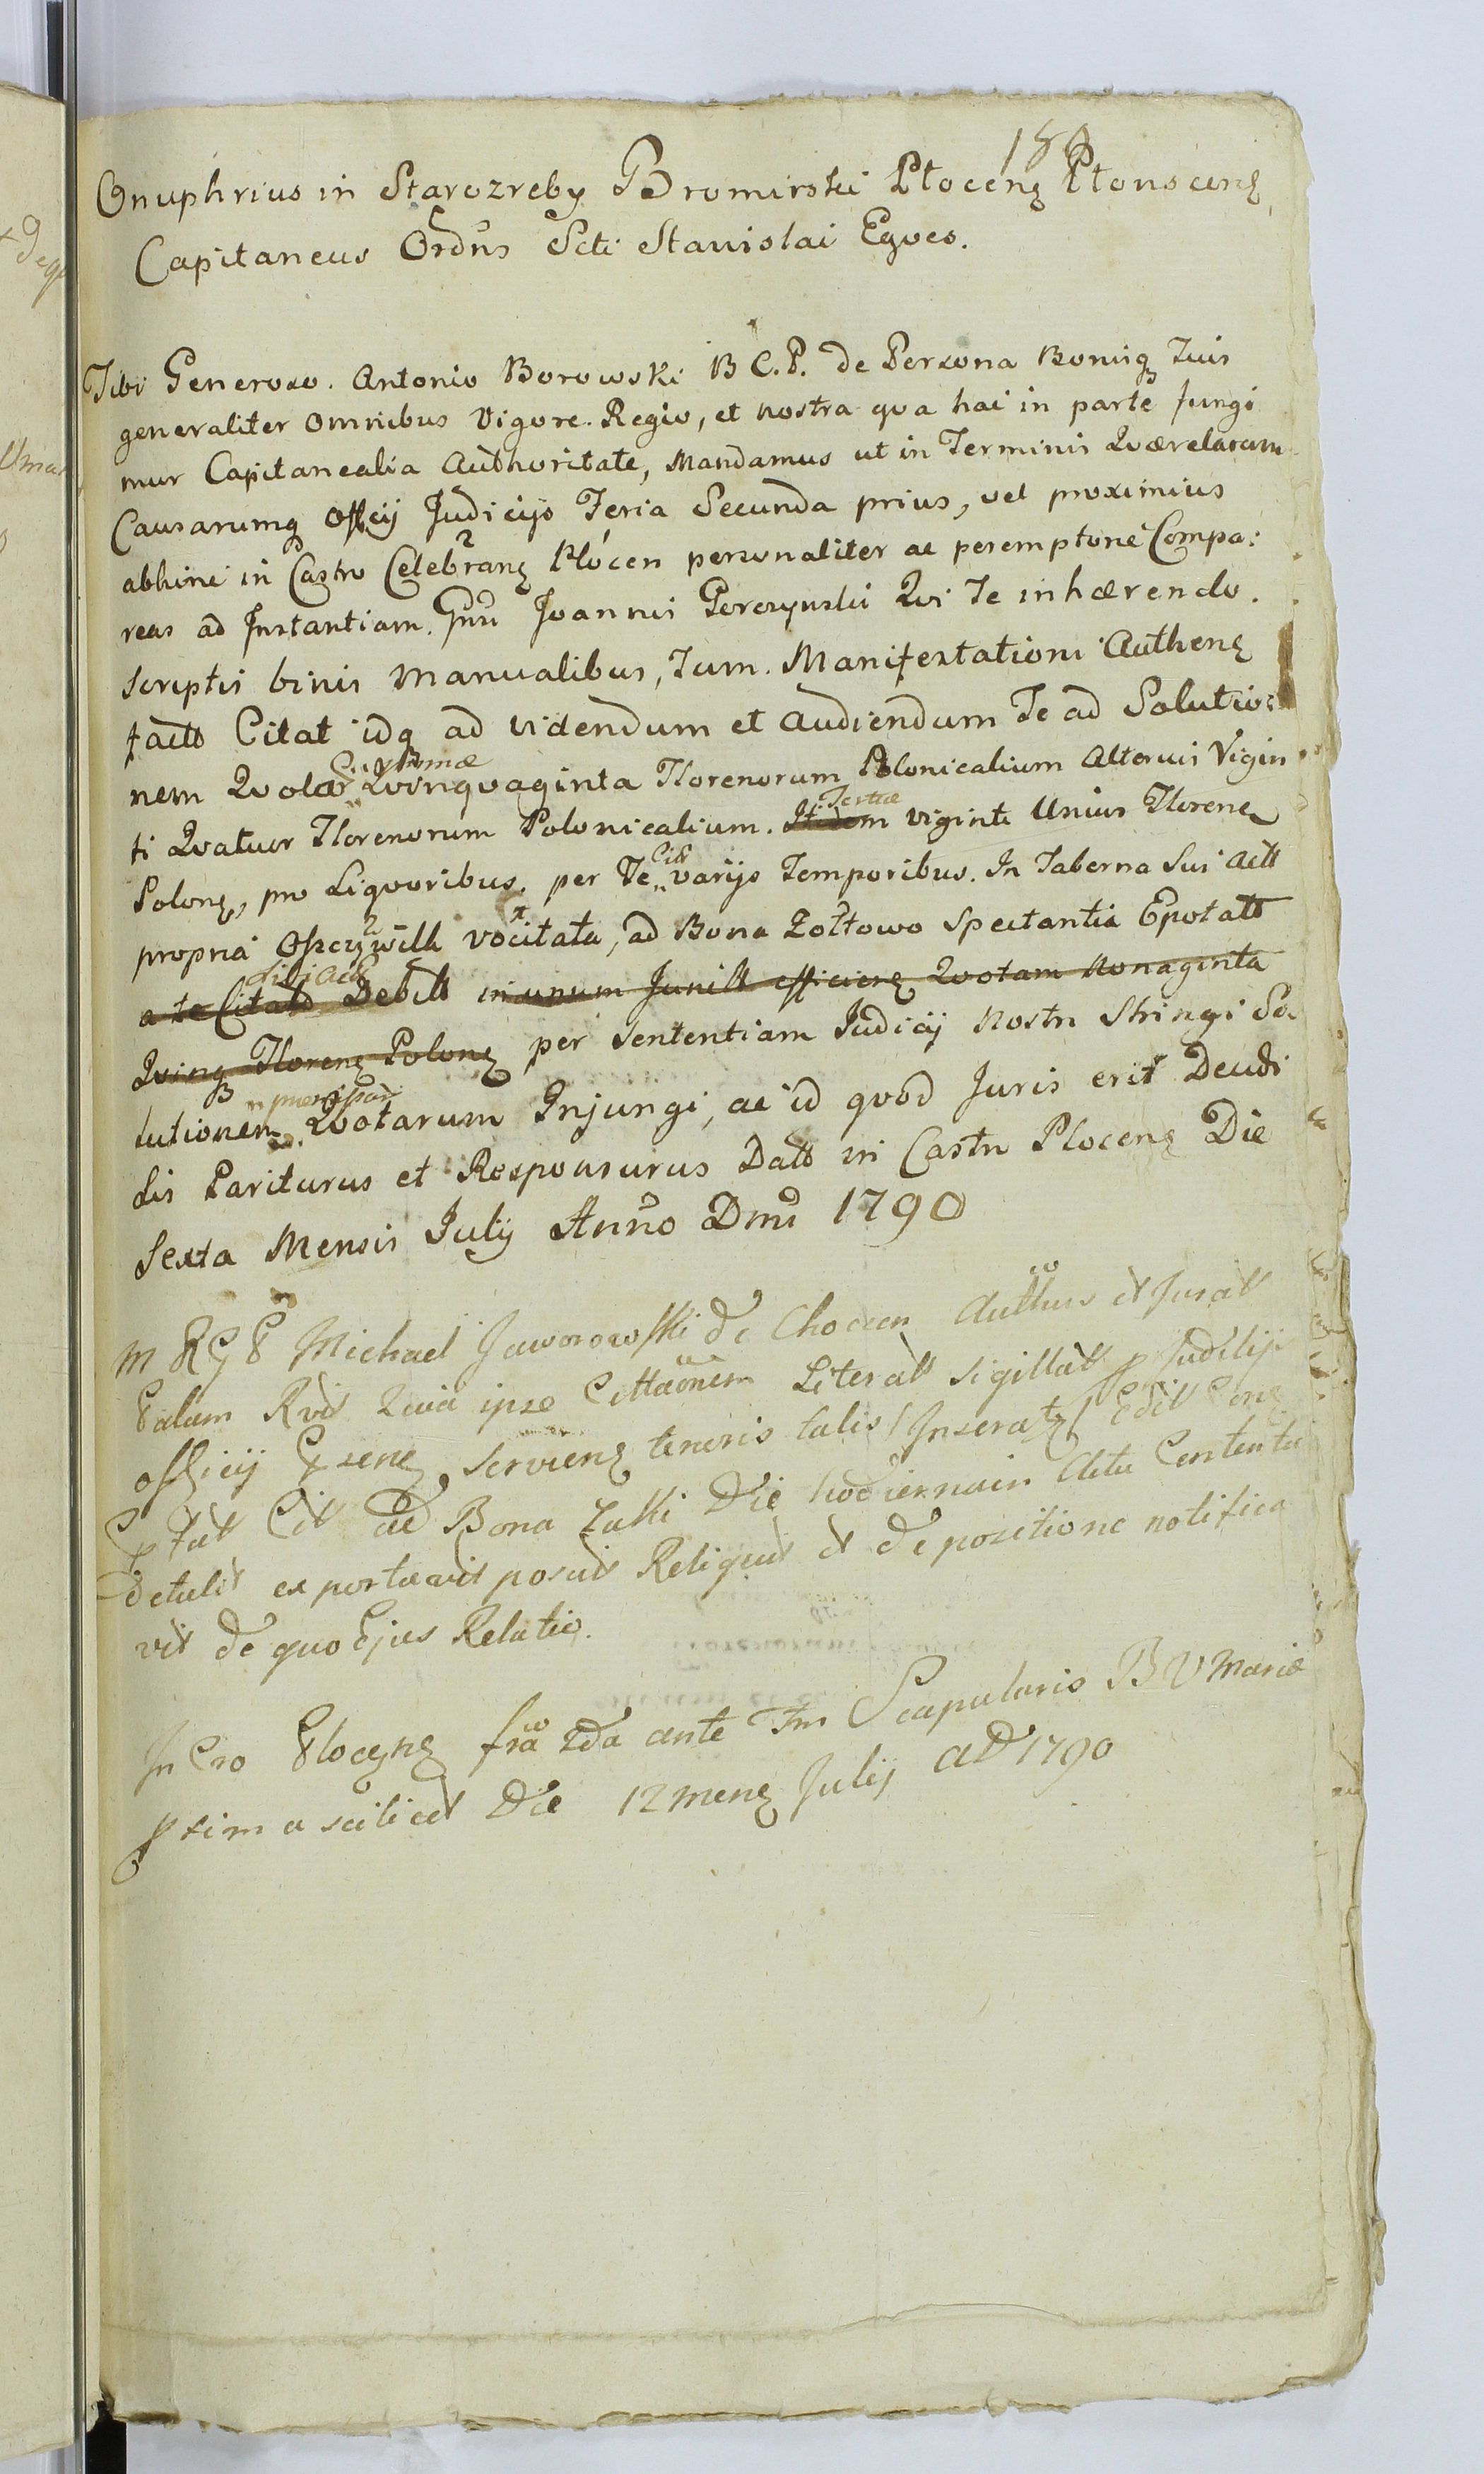 Onuphrius in Starozreby Bromirski Płocenȩ Płonscenȩ
Capitaneus Ordnis Scti Stanislai Eqves.
Tibi Generoso. Antonio Borowski B C. P. de Persona Bonisq Tuis
generaliter omnibus Vigore. Regio, et nostra qva hac in parte fungi
mur Capitaneali Authoritate, Mandamus ut in Terminis Qværelarum
Causarumq Officij Judicijs Feria Secunda prius, vel proximius
abhinc in Castro Celebranȩ Płocen personaliter ac peremptorie Compa:
reas ad Instantiam. Gnsi Joannis Gorczynski Qvi Te inhærendo.
scriptis binis Manualibus, Tum. Manifestationi Authenȩ
factæ Citat idq ad videndum et audiendum Te ad Solutio:
nem Qvotar primæ Qvinqvaginta Florenorum Polonicalium Alterius Vigin
ti Qvatuor Florenorum Polonicalium. Item Tertiæ viginti Unius Florenȩ
Polonȩ, pro Liqvoribus. per Te Citt varijs Temporibus. In Taberna Sui Actt
propria vocitata, ad Bona Zołtowo Spectantia Epotatt
a te Citato Tibi Actt Debitt in unum Junctt efficienȩ Qvotam Nonaginta
Qvinq Florenȩ Polonȩ per Sententiam Judicij Nostri Stringi So
lutionem Qvotarum Injungi, ac id qvod Juris erit Decidi
dis Pariturus et Responsurus Datt in Castro Plocenȩ Die
Sexta Mensis Julij Anno Dni 1790
M R G P Michael Jaworowski de Chocen Authus et Jurat
Palam Rvit Quia ipse Cittaonem Literatt Sigillatt p Judelij
officij Exenȩ servienȩ tenoris talis / Inseratȩ / Edit Cenȩ
ptat Cit ad Bona Zakki Die hodierna in Actu Contenta
detulit exportavit posuit Reliquit et de positione notifica
vit de quo Ejus Relatio.
In Cro Płocynȩ fra 2da ante Fm Scapularis B V Mariæ
pxima scilicet Die 12 menȩ Julij AD 1790